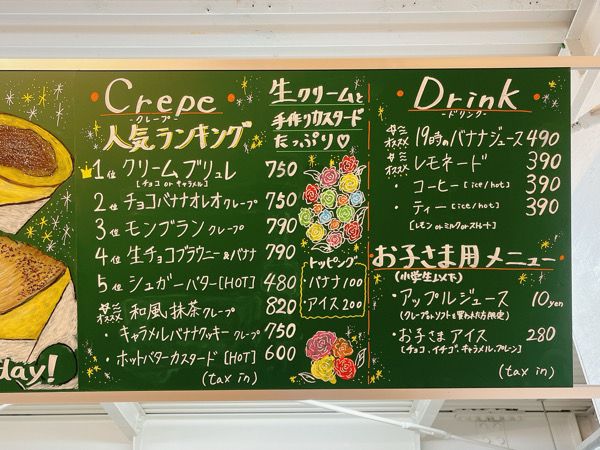 Crepe
-クレープ-
人気ランキング
1位 クリームブリュレ 750
[チョコ or キャラメル]
2位 チョコバナナオレオ クレープ 750
3位 モンブラン クレープ 790
4位 生チョコブラウニー&バナナ 790
5位 シュガーバター[HOT] 480
オススメ 和風抹茶 クレープ 820
・キャラメルバナナクッキー クレープ 750
・ホットバターカスタード [HOT] 600
(tax in)
生クリームと
手作りカスタード
たっぷり♡
トッピング
・バナナ 100
・アイス 200
Drink
-ドリンク-
オススメ 19時のバナナジュース 490
オススメ レモネード 390
・コーヒー [ice/hot] 390
・ティー [ice/hot] 390
[レモン or ミルク or ストレート]
お子さま用メニュー
(小学生以下)
・アップルジュース 10yen
(クレープorソフトを買われた方限定)
・お子さまアイス 280
[チョコ、イチゴ、キャラメル、プレーン]
(tax in)
day!